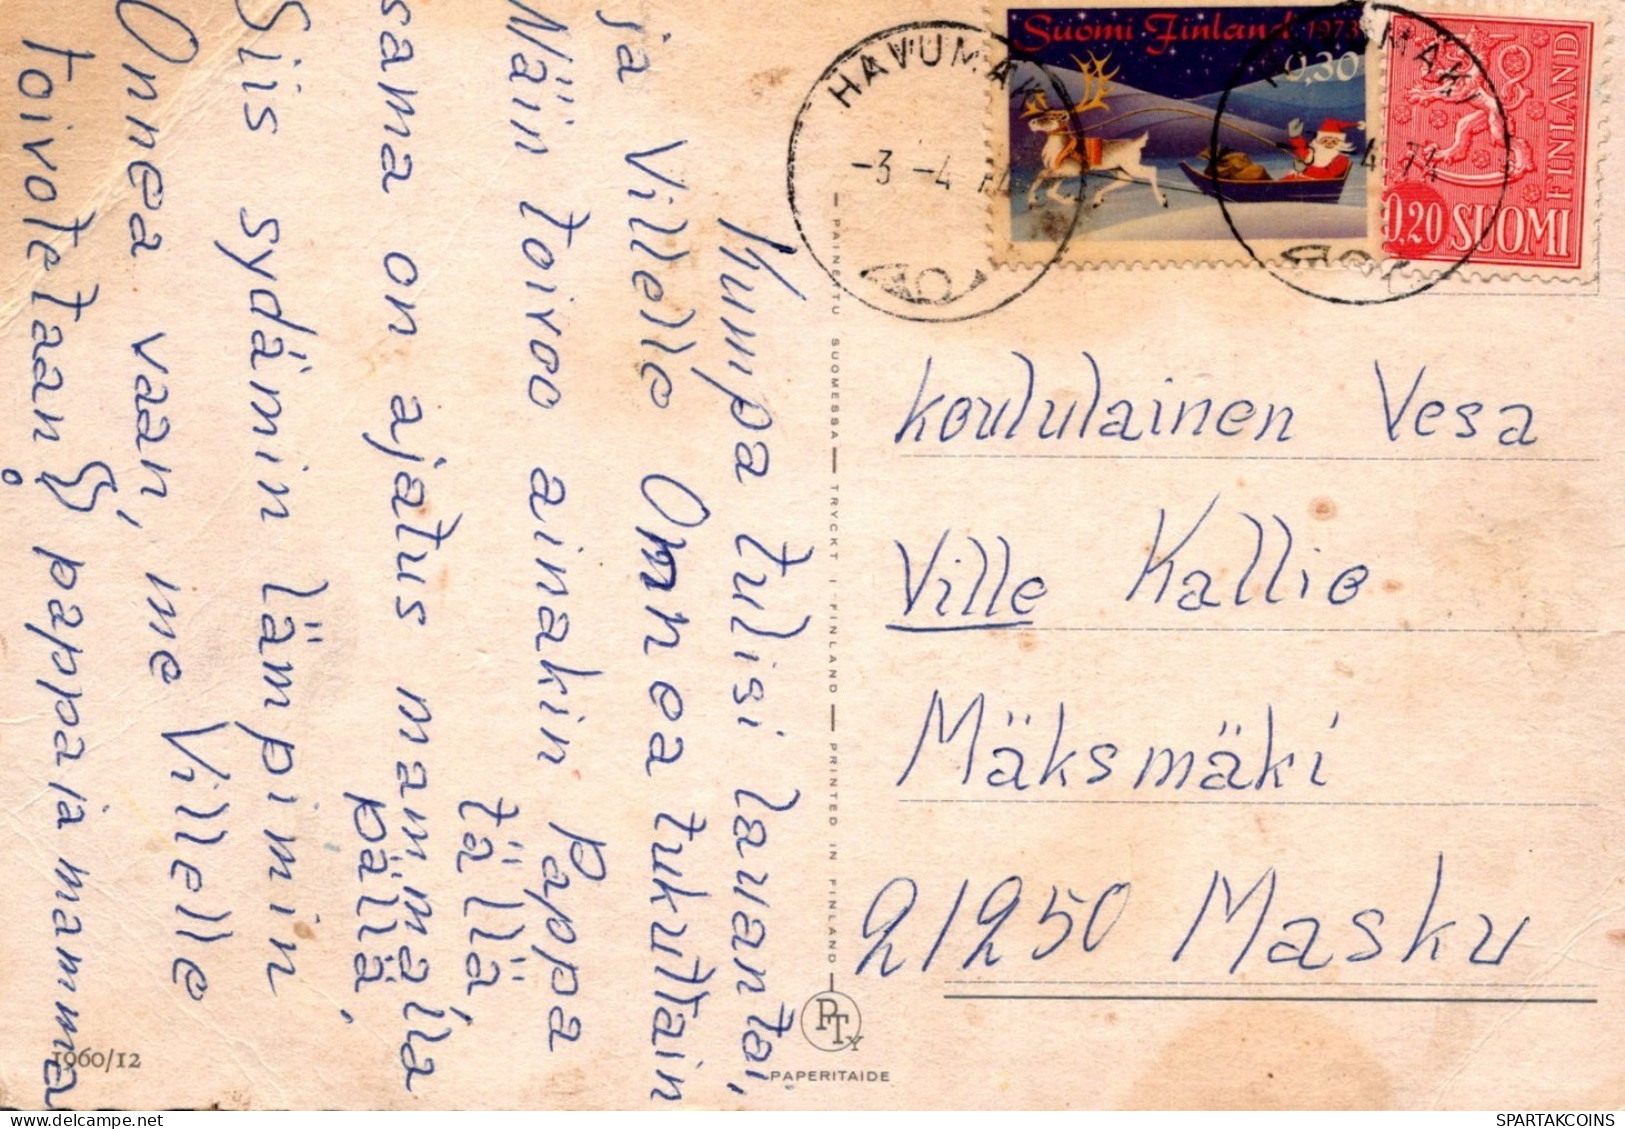 Kumpa tulisi lauantai,
ja Villelle Onnea tukuttain
Näin toivoo ainakin Pappa
sama on ajatus mammalla
tällä
päällä,
Siis sydämin lämpimin
Onnea vaan, me Villelle
toivotetaan pappa ja mamma
1960/12
PAINETTU SUOMESSA — TRYCKT I FINLAND — PRINTED IN FINLAND
PTy
PAPERITAIDE
Suomi Finland 1973
0,30
FINLAND
0,20 SUOMI
HAVUMÄKI
-3.-4.74
HAVUMÄKI
-3.-4.74
Koululainen Vesa
Ville Kallio
Mäksmäki
21250 Masku
SPARTAKCOINS
www.spartakcoins.com